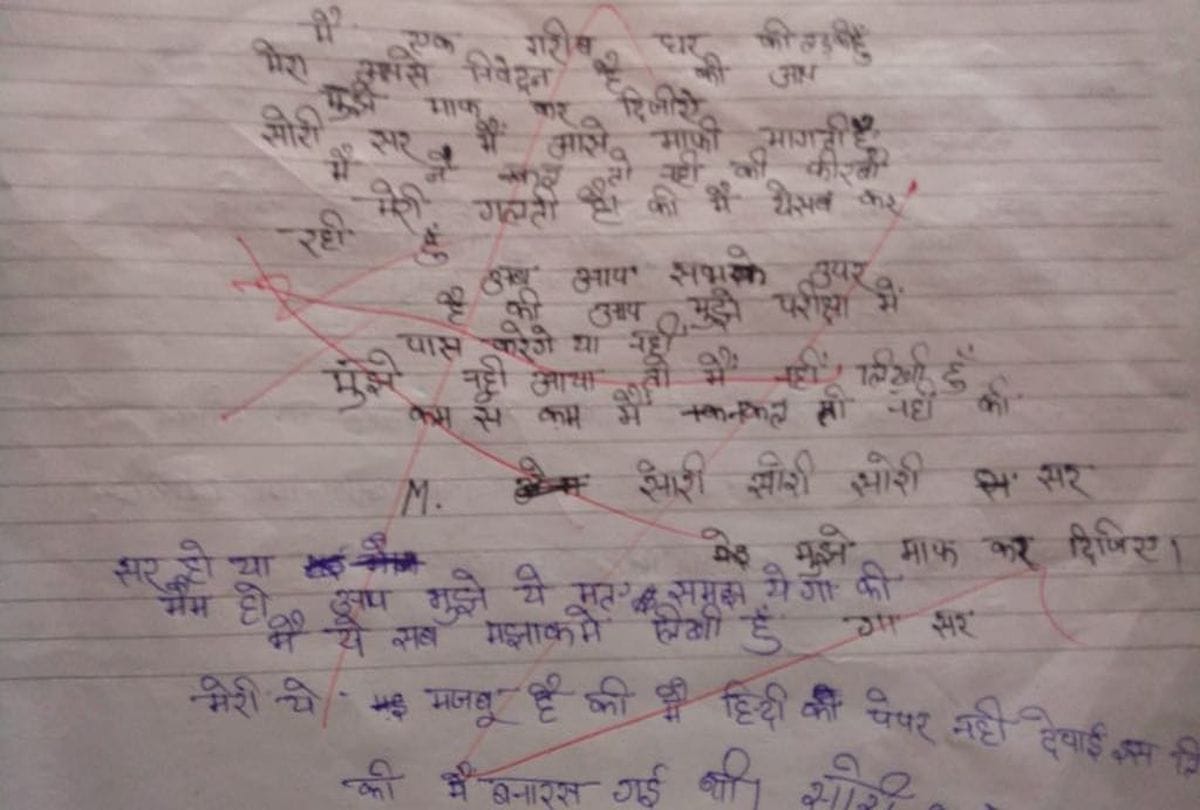 मैं एक गरीब घर की लडकी हुँ
मेरा आपसे निवेदन है की आप
मुझे माफ कर दिजीऐ
सोरी सर मैं आपसे माफी मागती हुँ
मैं ने नकल तो नही की
मेरी गलती है। की मैं येसब कर
रही हुँ
अब आप सभके उपर
है की आप मुझे परीक्षा में
पास करेगे या नही
मुझे नही आया तो मैं नहीं लिखी हुँ
कम स कम मैं नकल तो नहीं की
M. सोरी सोरी सोरी स सर
मुझे माफ कर दिजिए।
सर हो या
मैम हो आप मुझे ये मत समझ येगा की
मैं ये सब मझाकमें लिखी हुँ गा सर
मेरी ये मजबू है की मैं हिदी की पेपर नही देपाई इस
की मैं बनारस गई थी। सोरी